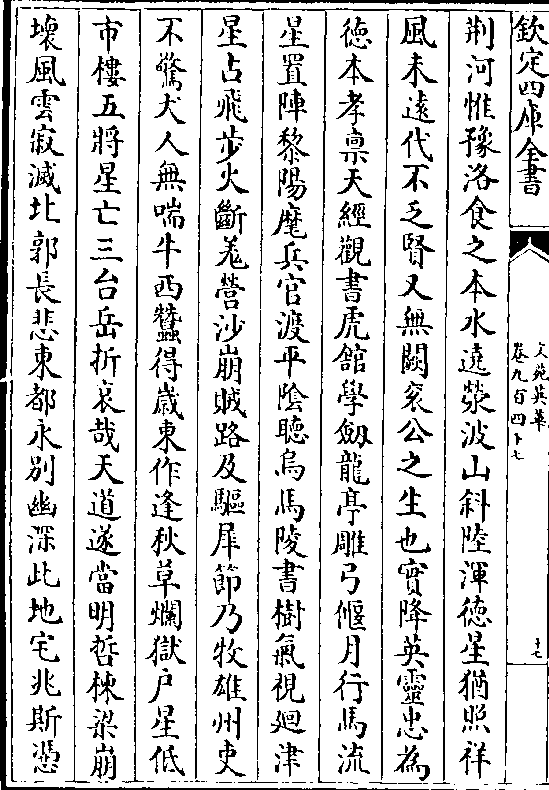 欽定四庫全書
文苑英華
卷九百四十七
十七
荆河惟豫洛食之本水遶滎波山斜陸渾德星猶照祥
風未遠代不乏賢又無闕衮公之生也實降英靈忠為
徳本孝禀天經觀書虎館學劔龍亭雕弓偃月行馬流
星置陣黎陽麾兵官渡平隂聽烏馬陵書樹氣視廻津
星占飛步火斷羗營沙崩賊路及驅犀節乃牧雄州吏
不驚犬人無喘牛西蠶得歳東作逢秋草爛獄户星低
市樓五將星亡三台岳折哀哉天道遂當明哲棟梁崩
壊風雲寂滅北郭長悲東都永别幽深此地宅兆斯憑